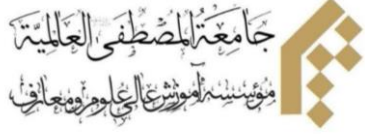 جَامِعَةُ المُصْطَفىٰ العَالَمِيَّة
مؤسسه آموزش عالی علوم و معارف